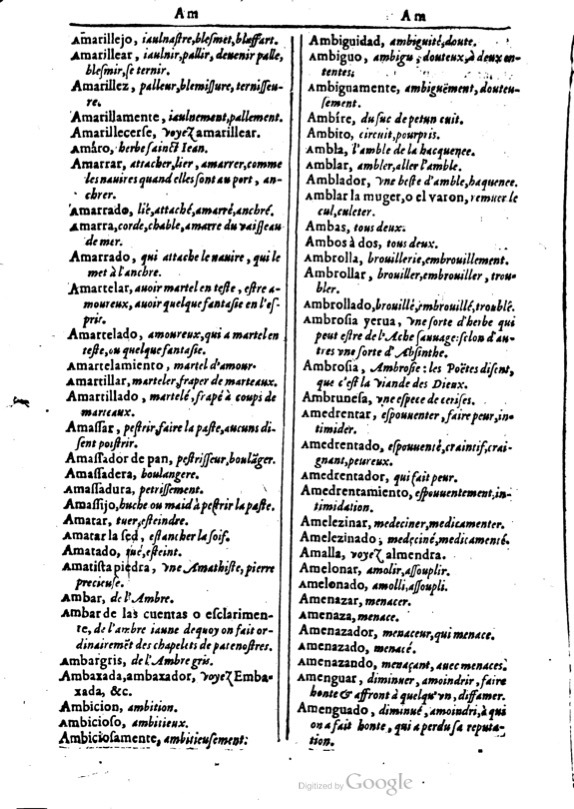 Am
Amarillejo, iaulnastre, blesmet, blaffart.
Amarillear, iaulnir, pallir, deuenir palle,
blesmir, se ternir.
Amarillez, palleur, blemissure, ternisseu-
re.
Amarillamente, iaulnement, pallement.
Amarillecerse, voyez amarillear.
Amaro, herbe sainct Iean.
Amarrar, attacher, lier, amarrer, comme
les nauires quand elles sont au port, an-
chrer.
Amarrado, lié, attaché, amarré, ancbré.
Amarra, corde, chable, amarre du vaisseau
de mer.
Amarrado, qui attache le nauire, qui le
met à l'ancbre.
Amartelar, auoir martel en teste, estre a-
moureux, auoir quelque fantasie en l'es-
prit.
Amartelado, amoureux, qui a martel en
teste, ou quelque fantasie.
Amartelamiento, martel d'amour.
Amartillar, marteler, fraper de marteaux.
Amartillado, martelé, frapé à coups de
marteaux.
Amassar, pestrir, faire la paste, aucuns di-
sent poistrir.
Amassador de pan, pestrisseur, boulãger.
Amassadera, boulangere.
Amassadura, petrissement.
Amassijo, huche ou maid à pestrir la paste.
Amatar, tuer, esteindre.
Amatar la sed, estancher la soif.
Amatado, tué, esteint.
Amatista piedra, vne Amathiste, pierre
precieuse.
Ambar, de l'Ambre.
Ambar de las cuentas o esclarimen-
te, de l'ambre iaune dequoy on fait or-
dinairemẽt des chapelets de patenostres.
Ambargris, de l'Ambre gris.
Ambaxada, ambaxador, voyez Emba-
xada, &c.
Ambicion, ambition.
Ambicioso, ambitieux.
Ambiciosamente, ambitieusement:
Am
Ambiguidad, ambiguité, doute.
Ambiguo, ambigu, douteux, à deux en-
tentes.
Ambiguamente, ambiguëment, douteu-
sement.
Ambire, du suc de petun cuit.
Ambito, circuit, pourpris.
Ambla, l'amble de la hacquenee.
Amblar, ambler, aller l'amble.
Amblador, vne beste d'amble, haquenee.
Amblar la muger, o el varon, remuer le
cul, culeter.
Ambas, tous deux.
Ambos à dos, tous deux.
Ambrolla, brouillerie, embrouillement.
Ambrollar, brouiller, embrouiller, trou-
bler.
Ambrollado, brouillé, embrouillé, troublé.
Ambrosia yerua, vne sorte d'herbe qui
peut estre de l'Ache sauuage: selon d'au-
tres vne sorte d'Absinthe.
Ambrosia, Ambrosie: les Poëtes disent,
que c'est la viande des Dieux.
Ambrunesa, vne espece de cerises.
Amedrentar, espouuenter, faire peur, in-
timider.
Amedrentado, espouuenté, craintif, crai-
gnant, peureux.
Amedrentador, qui fait peur.
Amedrentamiento, espouuentement, in-
timidation.
Amelezinar, medeciner, medicamenter.
Amelezinado, medeciné, medicamenté.
Amalla, voyez almendra.
Amelonar, amolir, assouplir.
Amelonado, amolli, assoupli.
Amenazar, menacer.
Amenaza, menace.
Amenazador, menaceur, qui menace.
Amenazado, menacé.
Amenazando, menaçant, auec menaces.
Amenguar, diminuer, amoindrir, faire
honte & affront à quelqu'vn, diffamer.
Amenguado, diminué, amoindri, à qui
on a fait honte, qui a perdu sa reputa-
tion.
Digitized by Google